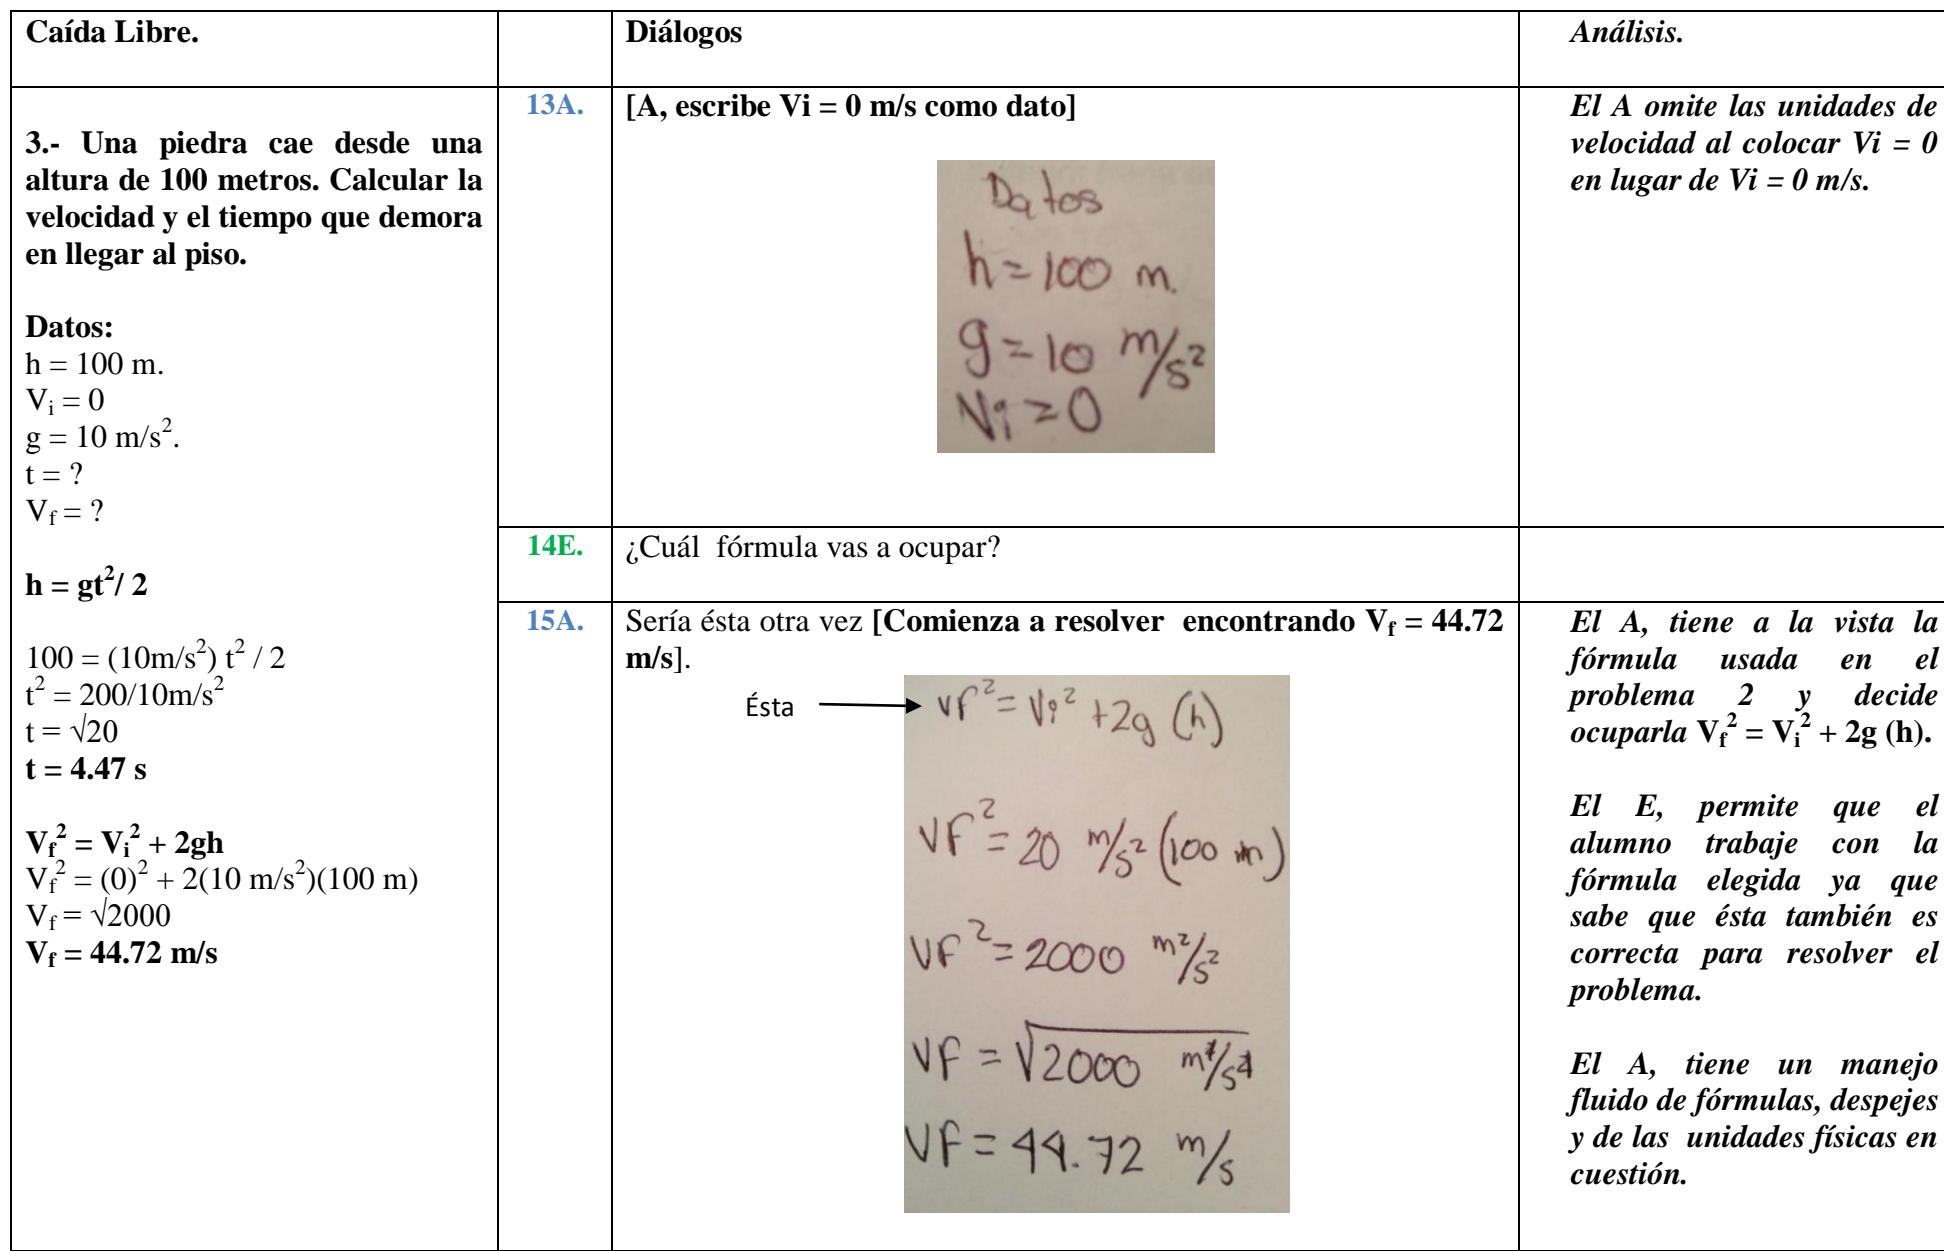 Caída Libre.
Diálogos
Análisis.
3.- Una piedra cae desde una
altura de 100 metros. Calcular la
velocidad y el tiempo que demora
en llegar al piso.
Datos:
h = 100 m.
Vᵢ = 0
g = 10 m/s².
t = ?
V_f = ?
h = gt²/ 2
100 = (10m/s²) t² / 2
t² = 200/10m/s²
t = √20
t = 4.47 s
V_f² = Vᵢ² + 2gh
V_f² = (0)² + 2(10 m/s²)(100 m)
V_f = √2000
V_f = 44.72 m/s
13A.
[A, escribe Vi = 0 m/s como dato]
Datos
h = 100 m.
g = 10 m/s²
Vi = 0
El A omite las unidades de
velocidad al colocar Vi = 0
en lugar de Vi = 0 m/s.
14E.
¿Cuál fórmula vas a ocupar?
15A.
Sería ésta otra vez [Comienza a resolver encontrando V_f = 44.72
m/s].
Ésta
vf² = Vi² + 2g (h)
VF² = 20 m/s² (100 m)
VF² = 2000 m²/s²
VF = √2000 m²/s²
VF = 44.72 m/s
El A, tiene a la vista la
fórmula usada en el
problema 2 y decide
ocuparla V_f² = Vᵢ² + 2g (h).
El E, permite que el
alumno trabaje con la
fórmula elegida ya que
sabe que ésta también es
correcta para resolver el
problema.
El A, tiene un manejo
fluido de fórmulas, despejes
y de las unidades físicas en
cuestión.